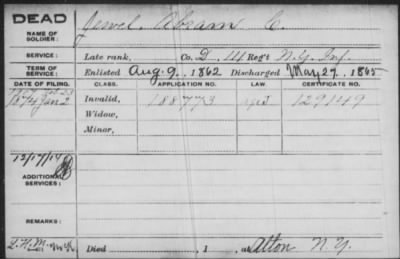 DEAD
NAME OF SOLDIER: Jewel, Abram C.
SERVICE: Late rank, Co. D, 111 Reg't N.Y. Inf.
TERM OF SERVICE: Enlisted Aug. 9, 1862 Discharged May 27, 1865
DATE OF FILING. CLASS. APPLICATION NO. LAW. CERTIFICATE NO.
1874 Jan 2 Invalid, 188773 129149
Widow,
Minor,
12/17/14
ADDITIONAL SERVICES:
REMARKS:
Died , 1 , at Alton N.Y.